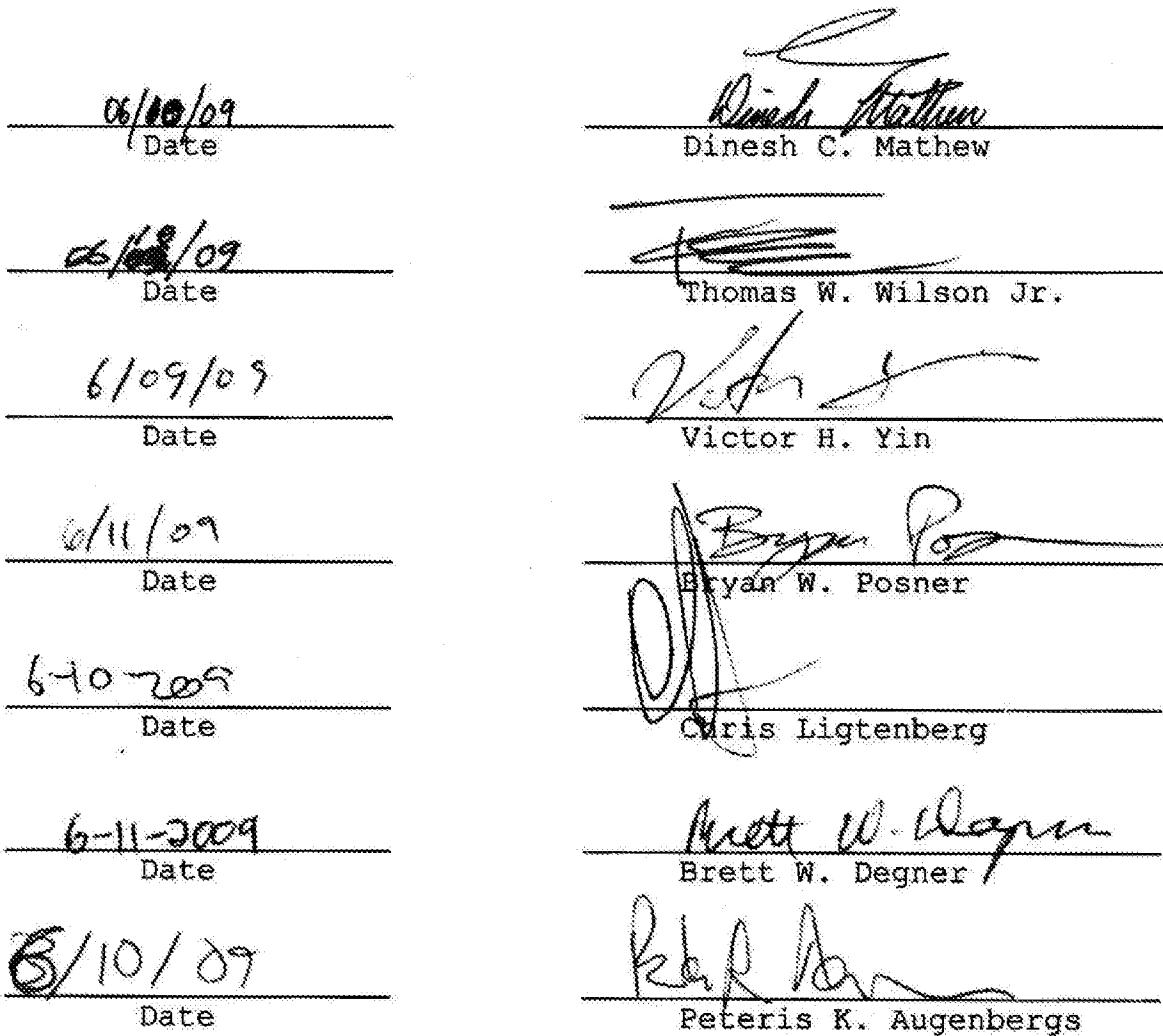 06/10/09 Dinesh Mathew
Date Dinesh C. Mathew
/09
Date Thomas W. Wilson Jr.
6/09/09 Victor
Date Victor H. Yin
6/11/09 Bryan Posner
Date Bryan W. Posner
6-10-2009
Date Chris Ligtenberg
6-11-2009 Brett W. Degner
Date Brett W. Degner
/10/09
Date Peteris K. Augenbergs